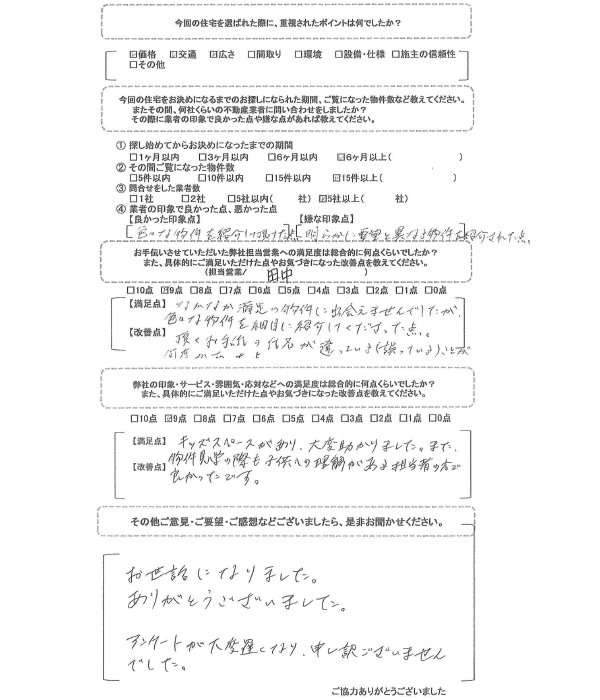 今回の住宅を選ばれた際に、重視されたポイントは何でしたか？
☑価格 ☑交通 ☑広さ □間取り □環境 □設備・仕様 □施主の信頼性
□その他
今回の住宅をお決めになるまでのお探しになられた期間、ご覧になった物件数など教えてください。
またその間、何社くらいの不動産業者に問い合わせをしましたか？
その際に業者の印象で良かった点や嫌な点があれば教えてください。
① 探し始めてからお決めになったまでの期間
□1ヶ月以内 □3ヶ月以内 □6ヶ月以内 ☑6ヶ月以上( )
② その間ご覧になった物件数
□5件以内 □10件以内 □15件以内 ☑15件以上( )
③ 問合せをした業者数
□1社 □2社 □5社以内( 社) ☑5社以上( 社)
④ 業者の印象で良かった点、悪かった点
【良かった印象点】 【嫌な印象点】
色々な物件を紹介して頂けた点 明らかに要望と異なる物件を紹介された点。
お手伝いさせていただいた弊社担当営業への満足度は総合的に何点くらいでしたか？
また、具体的にご満足いただけた点やお気づきになった改善点を教えてください。
(担当営業/ 田中 )
□10点 ☑9点 □8点 □7点 □6点 □5点 □4点 □3点 □2点 □1点 □0点
【満足点】 なかなか満足の物件に出会えませんでしたが、
色々な物件を細目に紹介してくださった点。
【改善点】 頂くお手紙の氏名が違っている(誤っている)ことが
弊社の印象・サービス・雰囲気・応対などへの満足度は総合的に何点くらいでしたか？
また、具体的にご満足いただけた点やお気づきになった改善点を教えてください。
□10点 ☑9点 □8点 □7点 □6点 □5点 □4点 □3点 □2点 □1点 □0点
【満足点】 キッズスペースがあり、大変助かりました。また、
物件見学の際も子供への理解がある担当者の方で
【改善点】 良かったです。
その他ご意見・ご要望・ご感想などございましたら、是非お聞かせください。
お世話になりました。
ありがとうございました。
アンケートが大変遅くなり、申し訳ございません
でした。
ご協力ありがとうございました